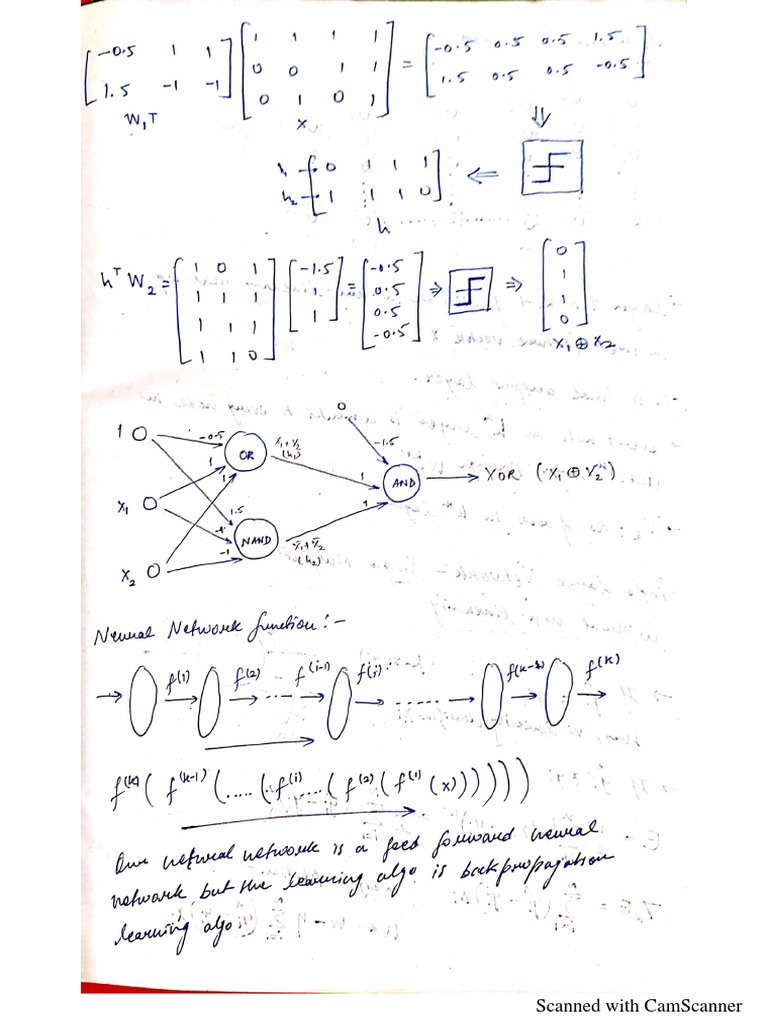 [-0.5 1 1] [1 1 1 1] = [-0.5 0.5 0.5 1.5]
[1.5 -1 -1] [0 0 1 1] [1.5 0.5 0.5 -0.5]
[0 1 0 1]
W₁T x ⇓
h₁ → [0 1 1 1] ⇐
h₂ → [1 1 1 0]
h
hᵀ W₂ = [1 0 1] [-1.5] = [-0.5] ⇒ ⇒ [0]
[1 1 1] [1] [0.5] [1]
[1 1 1] [1] [0.5] [1]
[1 1 0] [-0.5] [0]
x₁ ⊕ x₂
0
1 -0.5 OR x₁+x₂ (h₁) -1.5
1 1 1
x₁ 1.5 AND → XOR (x₁ ⊕ x₂)
-1 1
x₂ -1 NAND x̄₁+x̄₂ (h₂)
Neural Network function:-
→ f(1) → f(2) → ... f(i-1) → f(i) → ...... → f(k-1) → f(k) →
f(k) ( f(k-1) (..... ( f(i) ..... ( f(2) ( f(1) (x))))))
Our netural network is a feed forward neural
network but the learning algo is backpropagation
learning algo.
Scanned with CamScanner